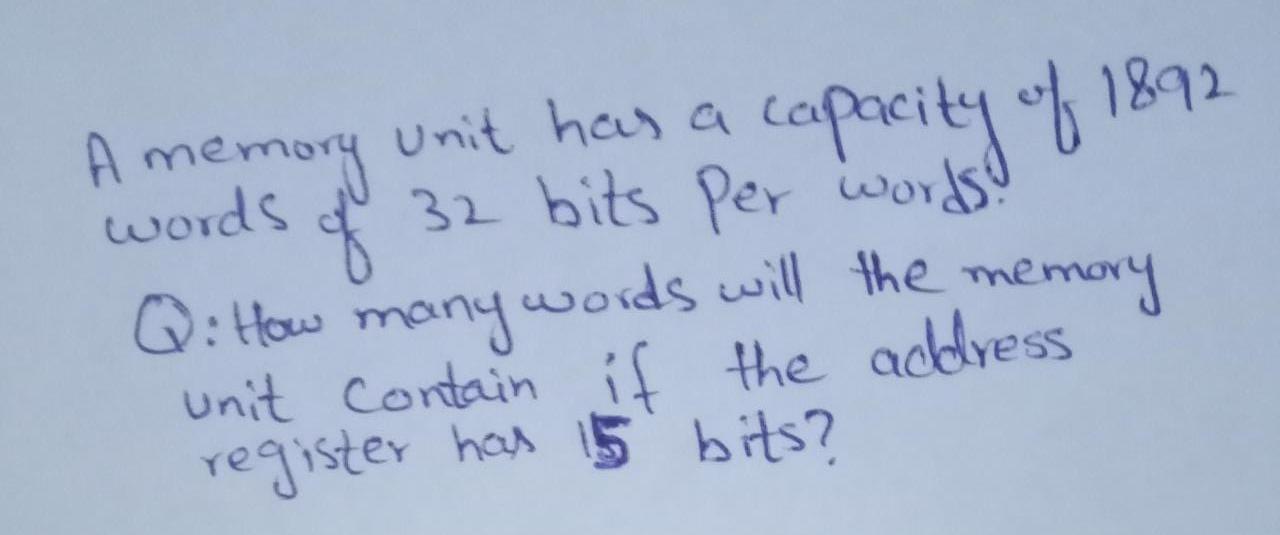 A memory unit has a capacity of 1892
words of 32 bits per words.
Q: How many words will the memory
unit contain if the address
register has 15 bits?